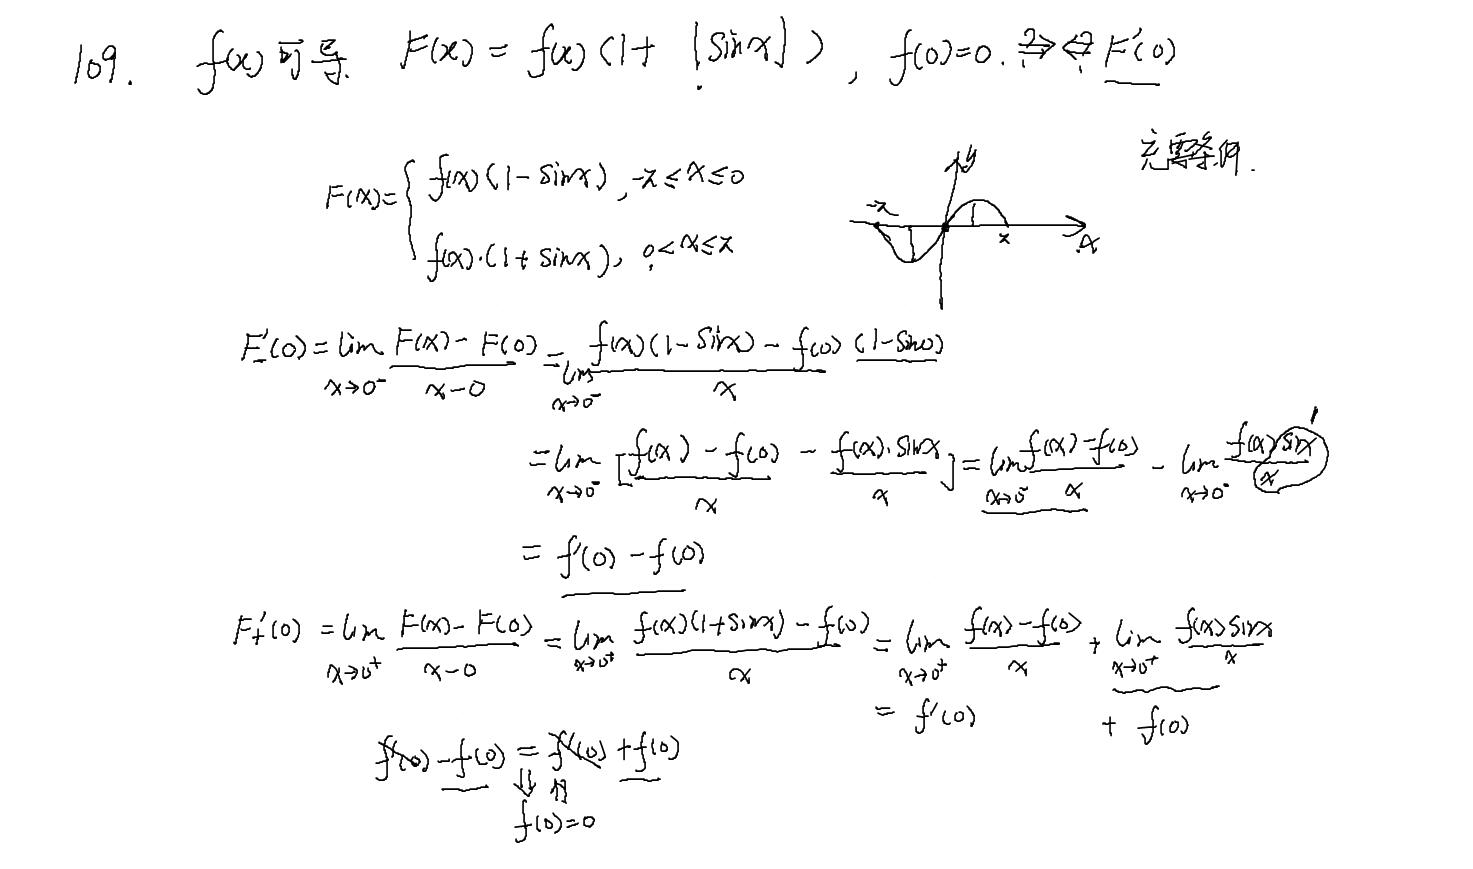 109. f(x)可导. F(x) = f(x)(1+ |sinx|), f(0)=0. ?⇒ ⇐? F'(0)
充要条件.
F(x)= { f(x)(1-sinx), -π≤x≤0
f(x)·(1+sinx), 0<x≤π
y
-π π x
F'₋(0) = lim_{x→0⁻} (F(x)-F(0))/(x-0) = lim_{x→0⁻} (f(x)(1-sinx)-f(0)(1-sin0))/x
= lim_{x→0⁻} [(f(x)-f(0))/x - (f(x)·sinx)/x] = lim_{x→0⁻} (f(x)-f(0))/x - lim_{x→0⁻} (f(x)sinx)/x 1
= f'(0)-f(0)
F₊'(0) = lim_{x→0⁺} (F(x)-F(0))/(x-0) = lim_{x→0⁺} (f(x)(1+sinx)-f(0))/x = lim_{x→0⁺} (f(x)-f(0))/x + lim_{x→0⁺} (f(x)sinx)/x
= f'(0) + f(0)
f'(0)-f(0) = f'(0)+f(0)
⇓ ⇑
f(0)=0